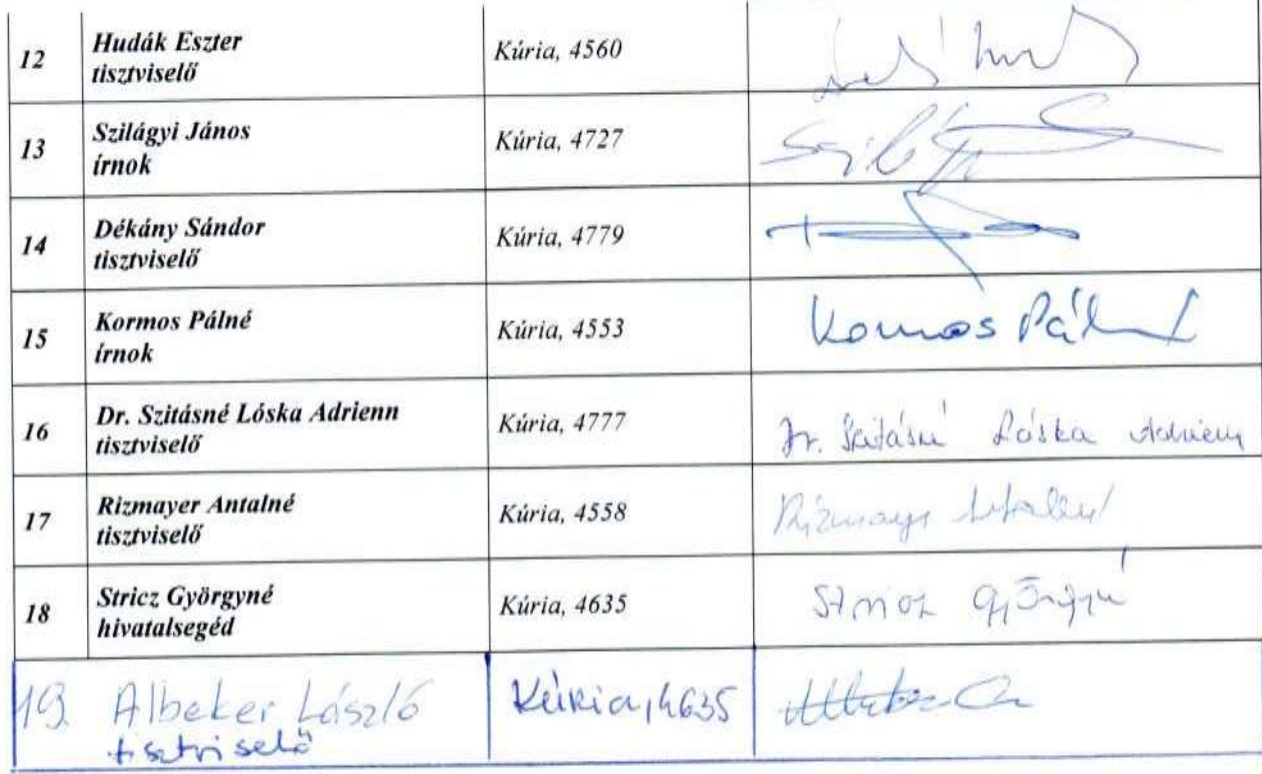 12
Hudák Eszter
tisztviselő
Kúria, 4560
13
Szilágyi János
írnok
Kúria, 4727
14
Dékány Sándor
tisztviselő
Kúria, 4779
15
Kormos Pálné
írnok
Kúria, 4553
Kormos Pálné
16
Dr. Szitásné Lóska Adrienn
tisztviselő
Kúria, 4777
Dr. Szitásné Lóska Adrienn
17
Rizmayer Antalné
tisztviselő
Kúria, 4558
Rizmayer Antalné
18
Stricz Györgyné
hivatalsegéd
Kúria, 4635
Stricz Györgyné
19. Albeker László
tisztviselő
Kúria, 4635